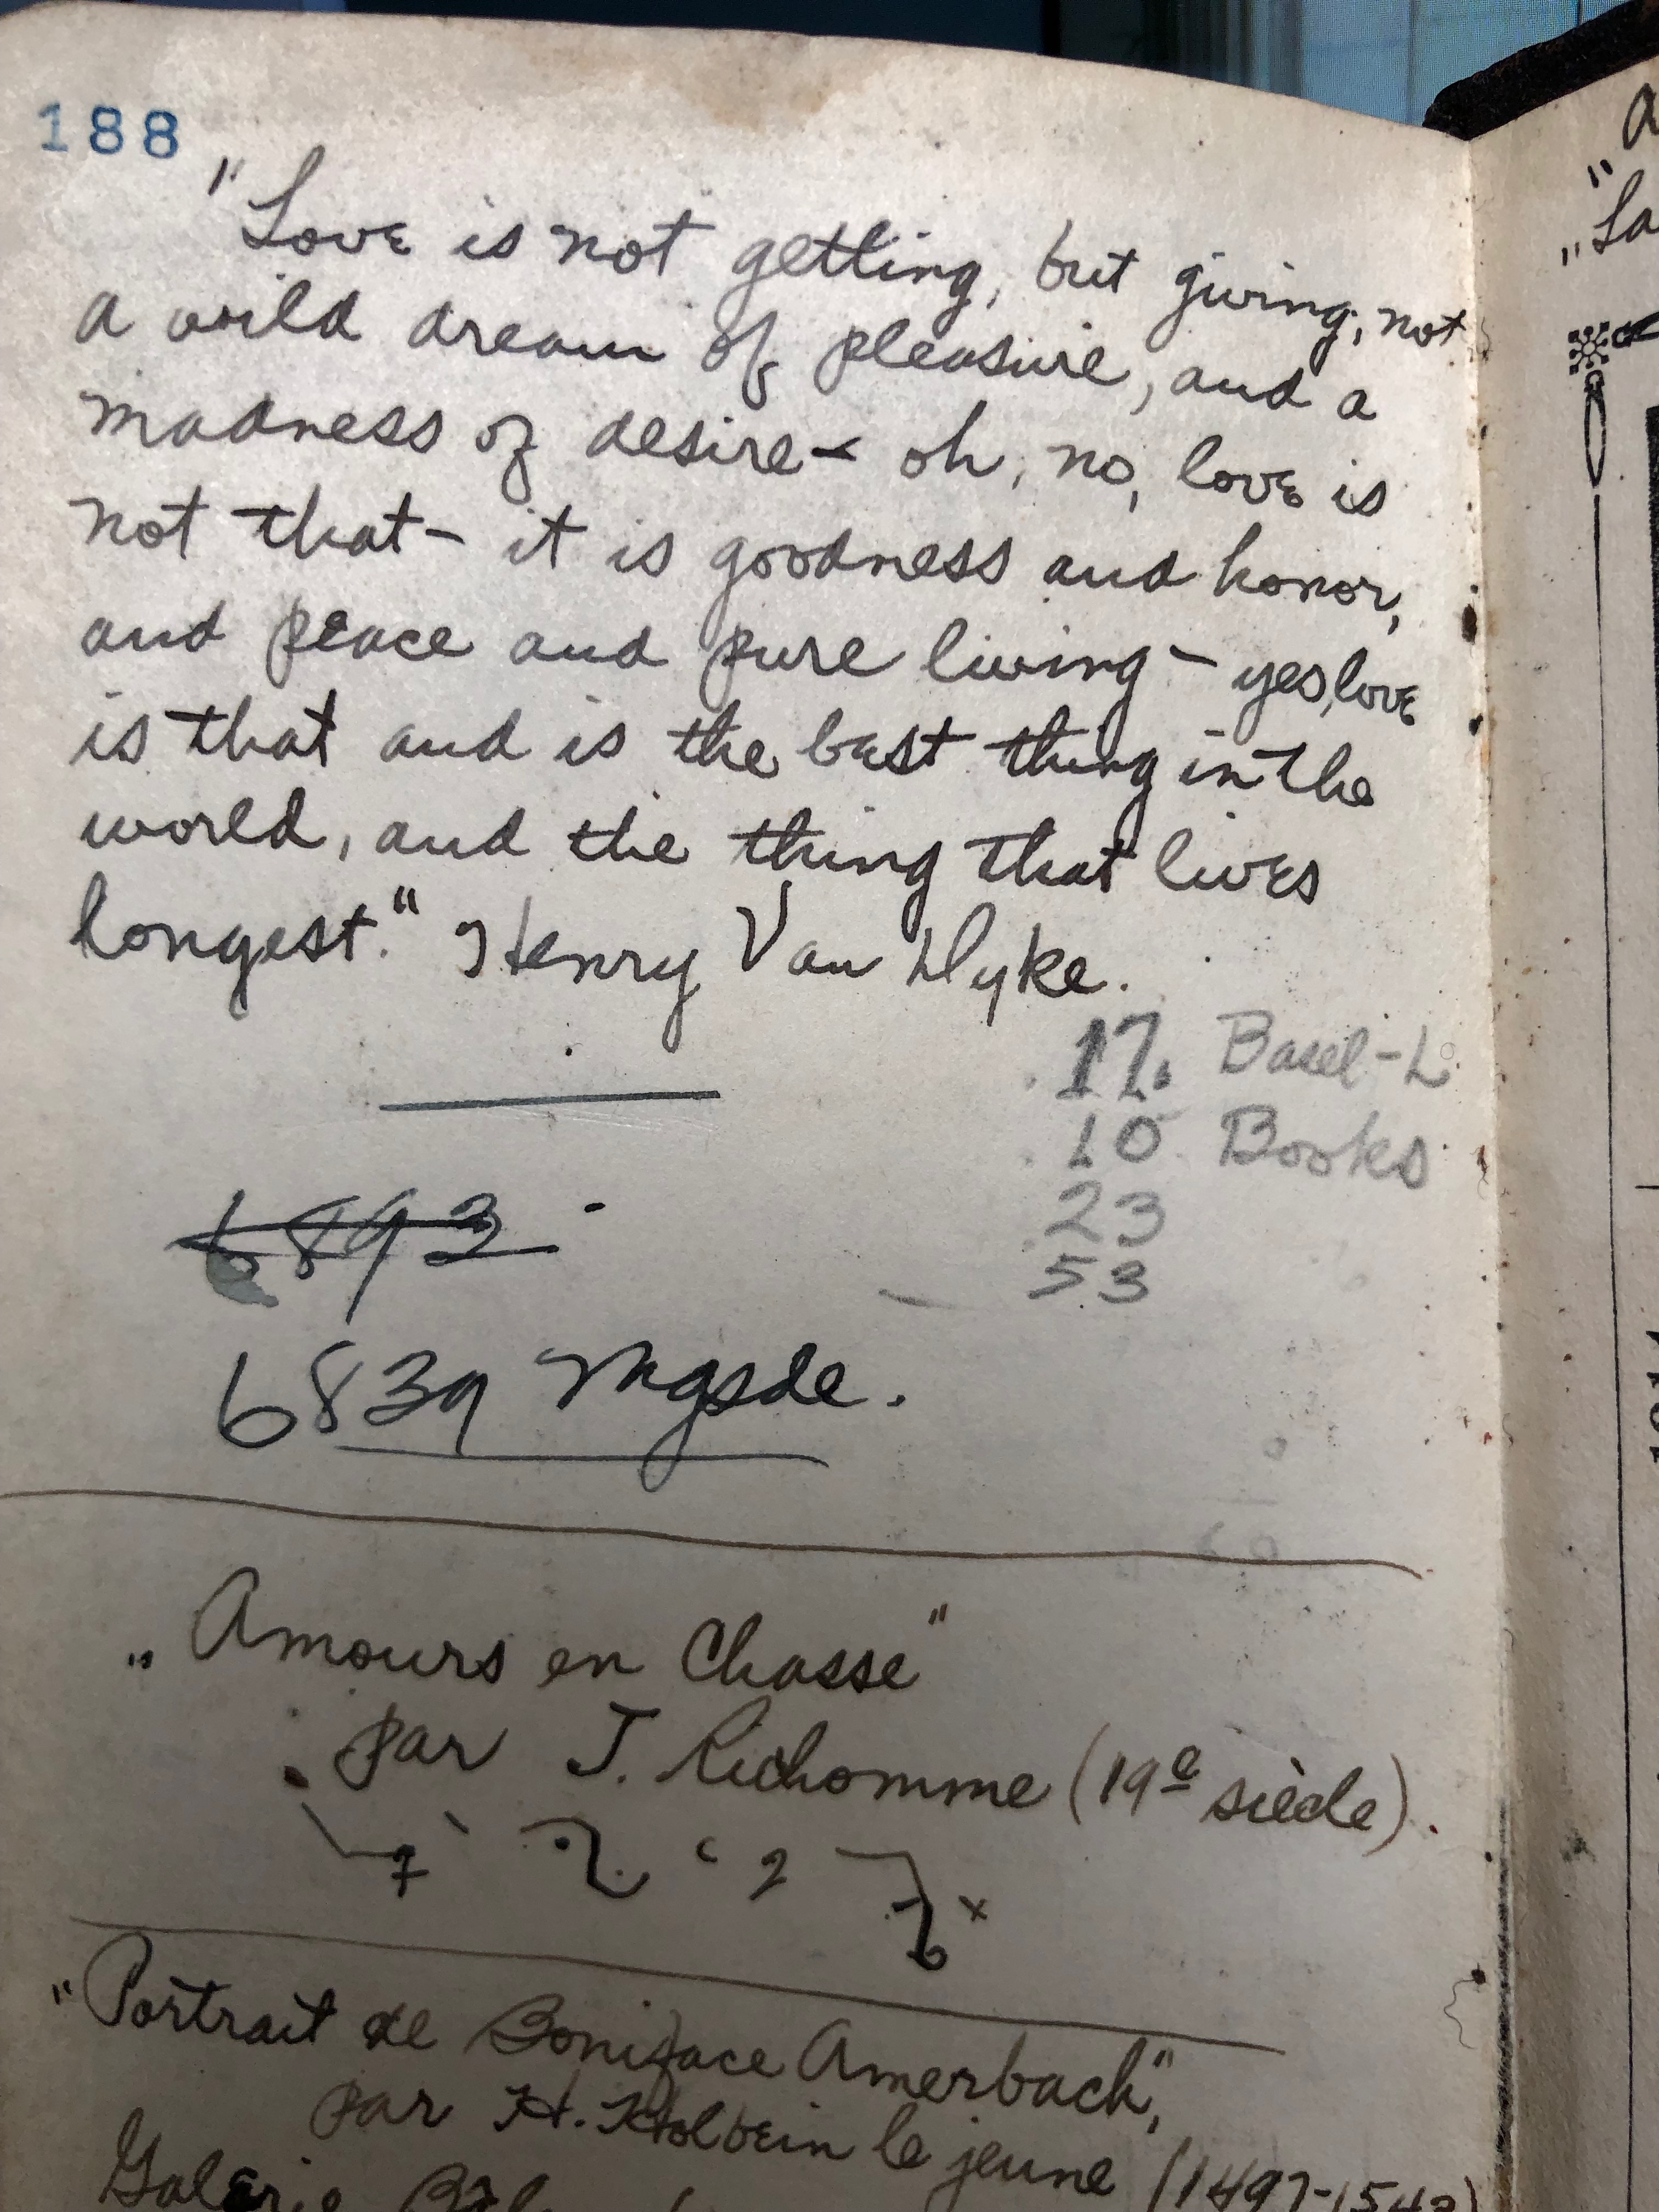 188
"Love is not getting, but giving, not
a wild dream of pleasure, and a
madness of desire - oh, no, love is
not that - it is goodness and honor,
and peace and pure living - yes, love
is that and is the best thing in the
world, and the thing that lives
longest." Henry Van Dyke.
17. Basel-L
10 Books
23
53
6893
6839 Mgsde.
„Amours en Chasse"
par J. Richomme (19e siècle).
"Portrait de Boniface Amerbach",
par H. Holbein le jeune (1497-1543)
Galerie